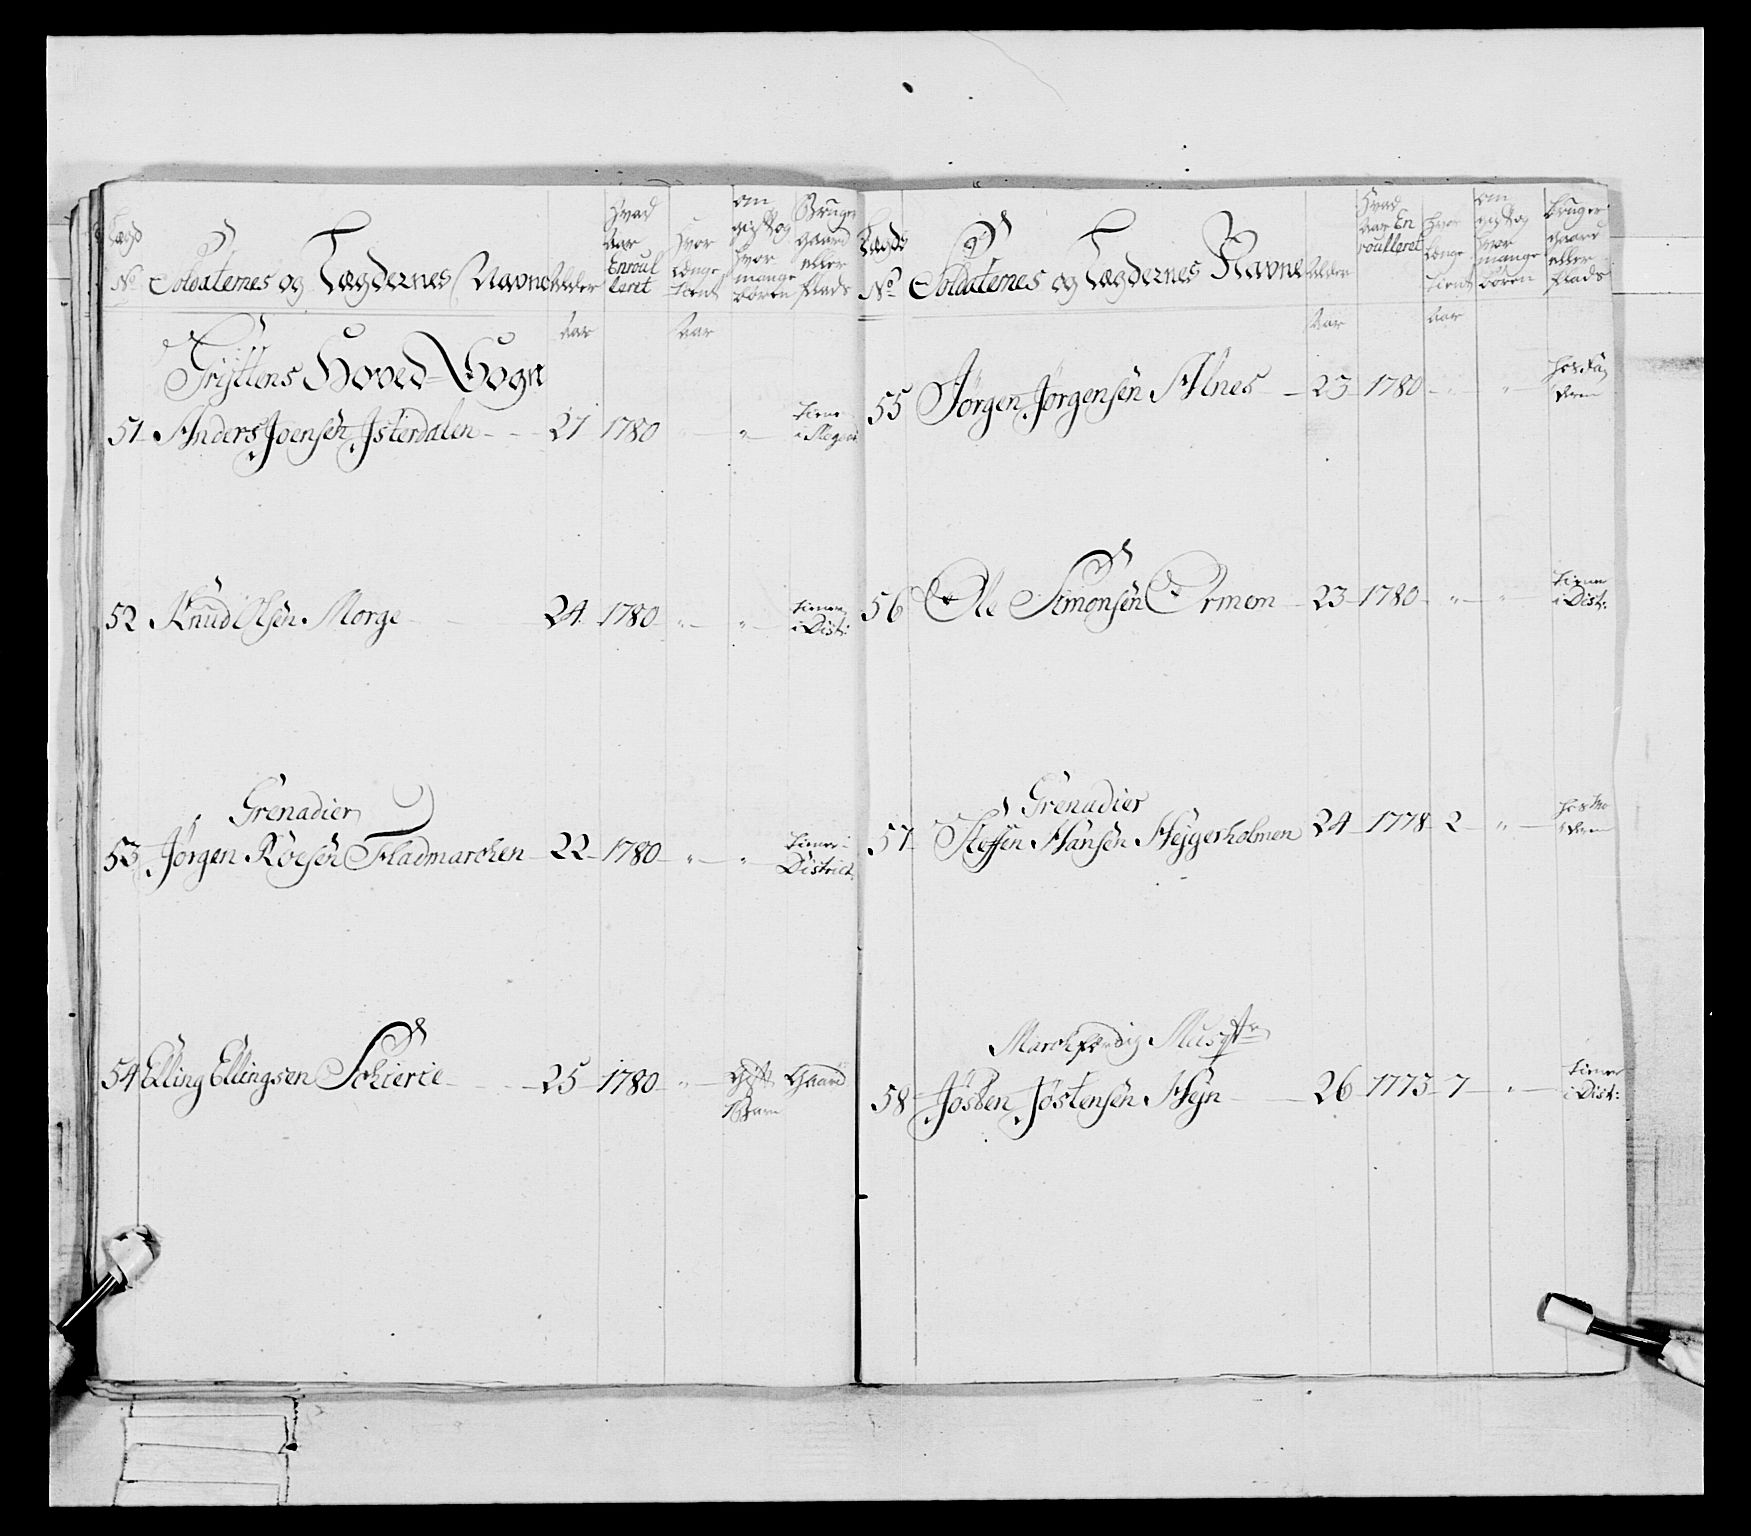 Lægd No Soldaternes og Lægdernes Navne Alder Hvad Aar Enroulleret Hvor Længe tient om gift og hvor mange børen Bruger gaard eller Plads
Aar Aar
Gryttens Hoved-Sogn
51 Anders Joensen Isterdalen 21 1780 " " tiene
52 Knud Olsen Morge 24 1780 " " tiener i Dist:
Grenadier
53 Jørgen Roesen Fladmarchen 22 1780 " " tiener i District
54 Elling Ellingsen Schierie 25 1780 " Gift 1 Barn Gaard
Lægds No Soldaternes og Lægdernes Navne Alder Hvad Aar Enroulleret hvor Længe tient om gift og hvor mange børen bruger gaard eller Plads
Aar Aar
55 Jørgen Jørgensen Alnes 23 1780 " " hos Faderen
56 Ole Simonsen Ormem 23 1780 " " tiener i Dist:
Grenadier
57 Steffen Hansen Heggerholmen 24 1778 2 " hos Moderen
Marchfærdig Musqtr
58 Josten Jostensen Hejn 26 1773 7 " tiener i Dist: